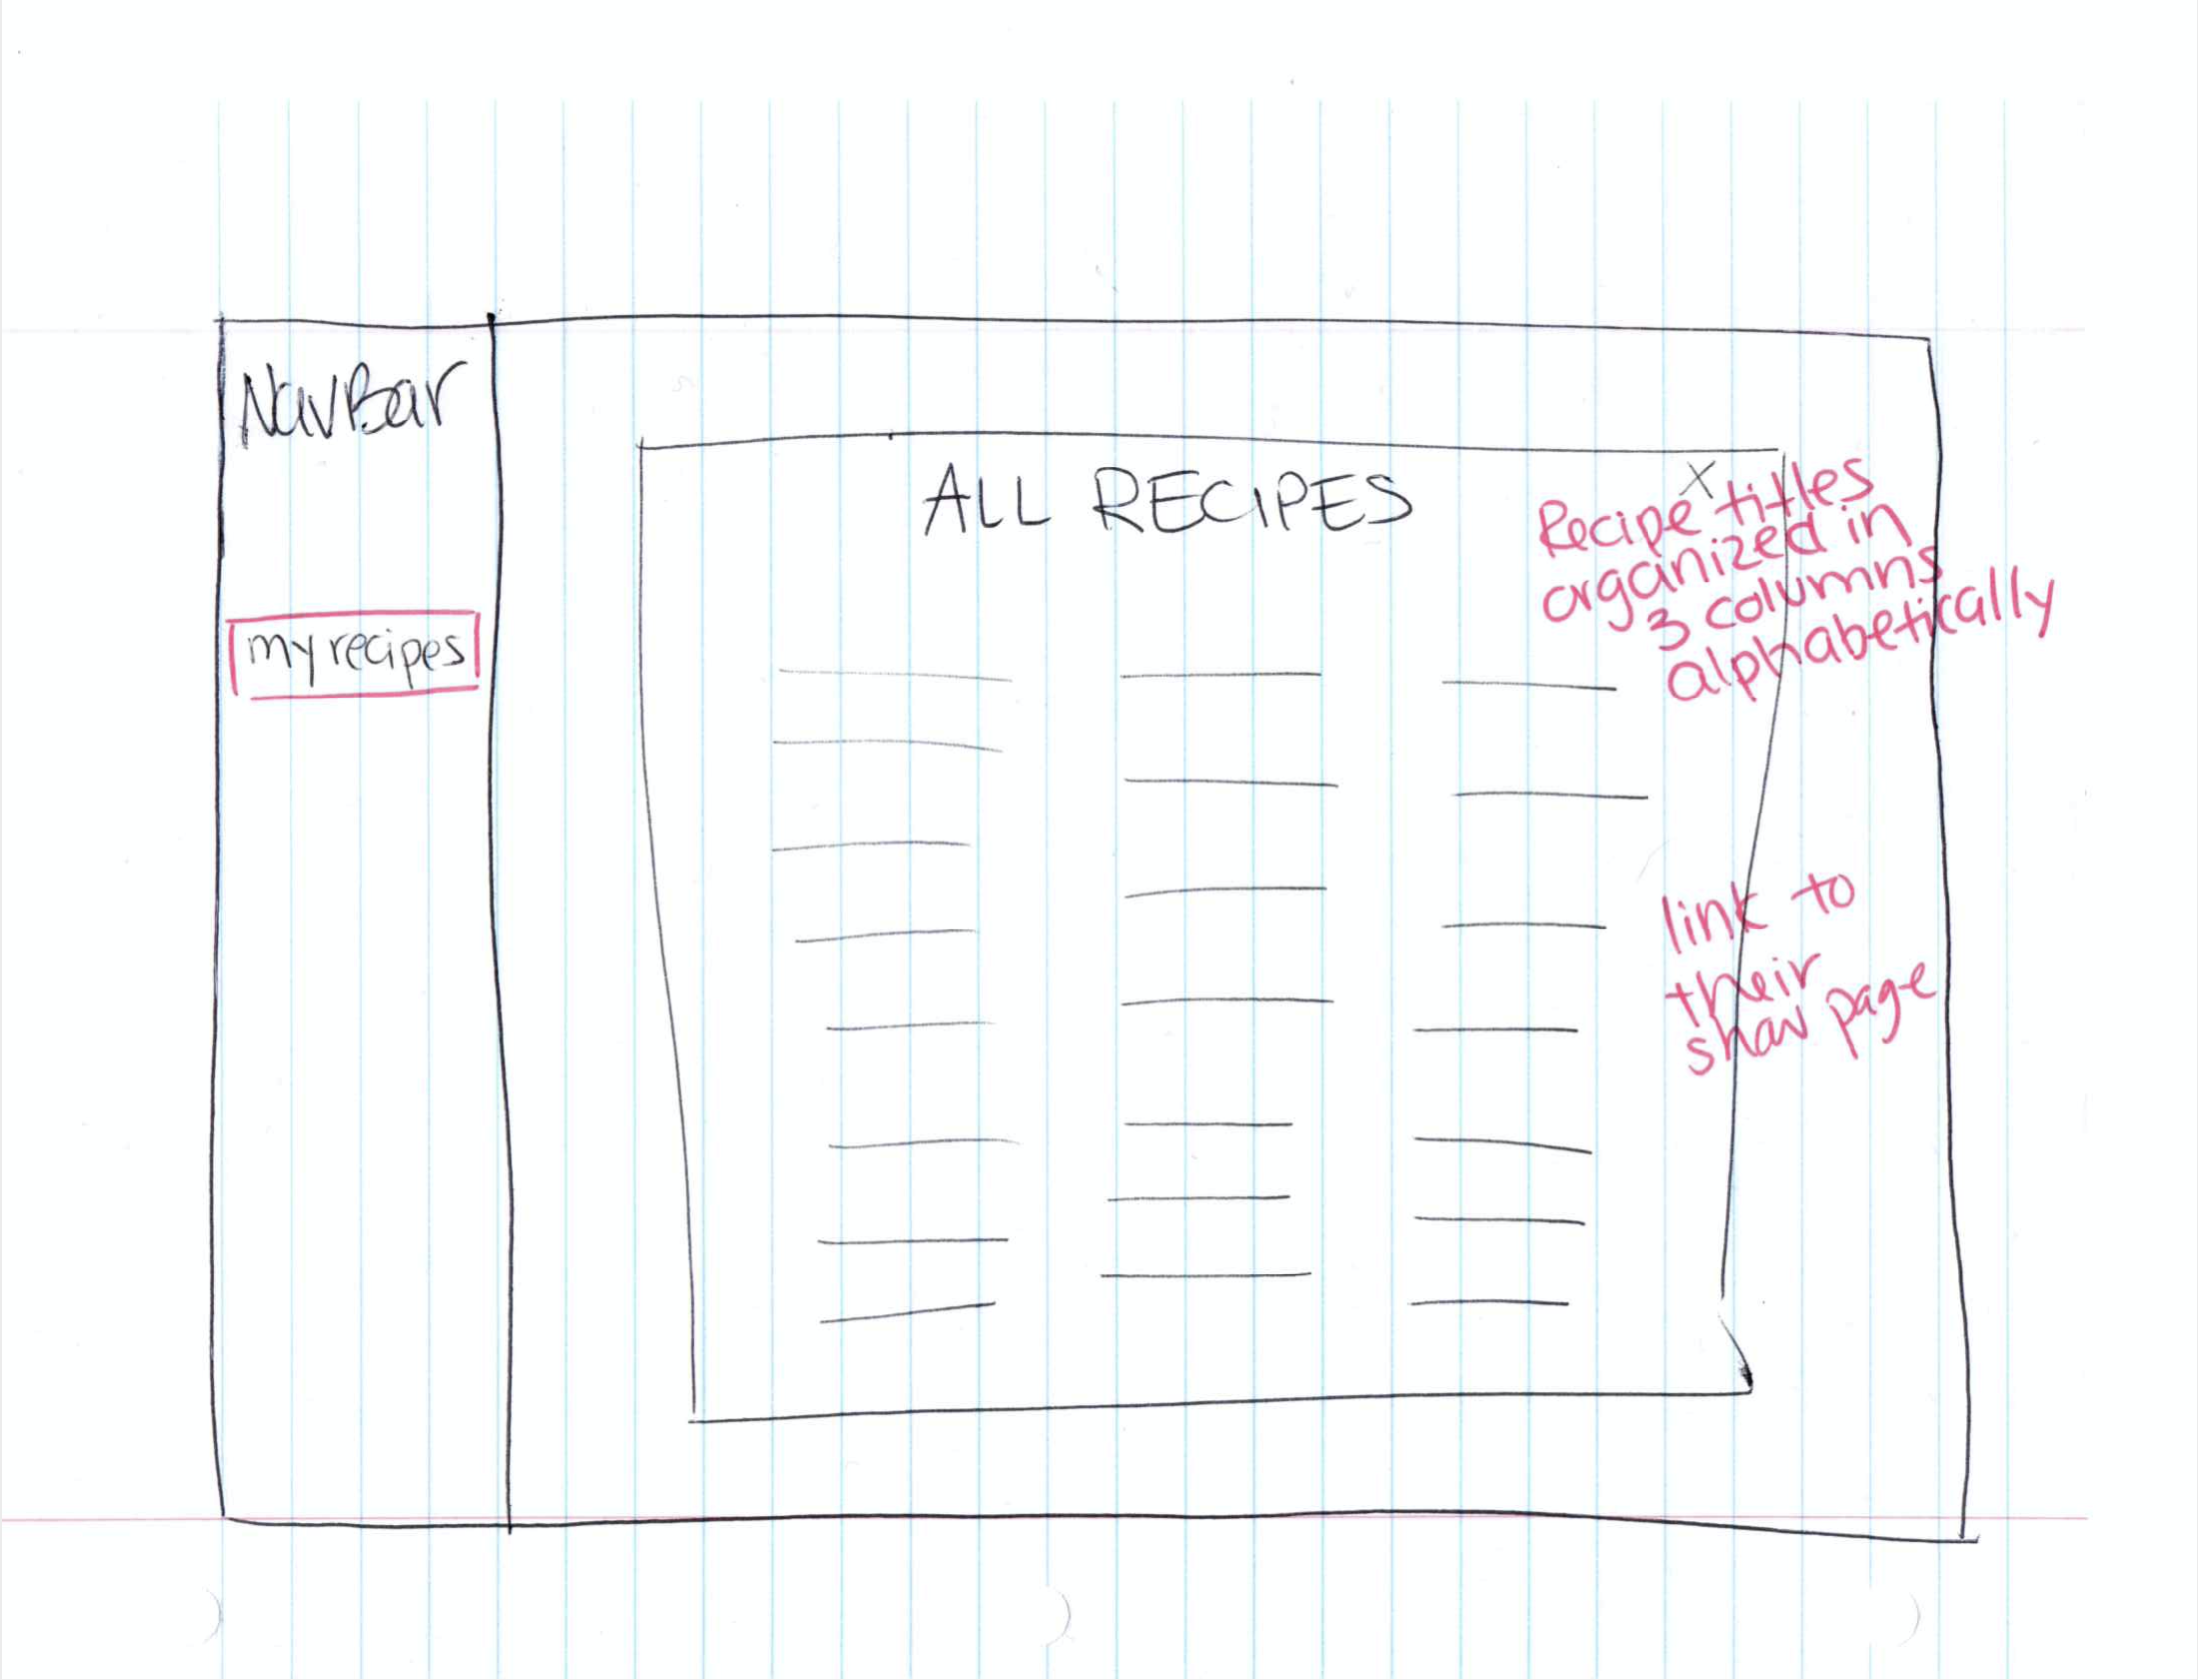 NavBar
my recipes
ALL RECIPES
X
Recipe titles
organized in
3 columns
alphabetically
link to
their
show page